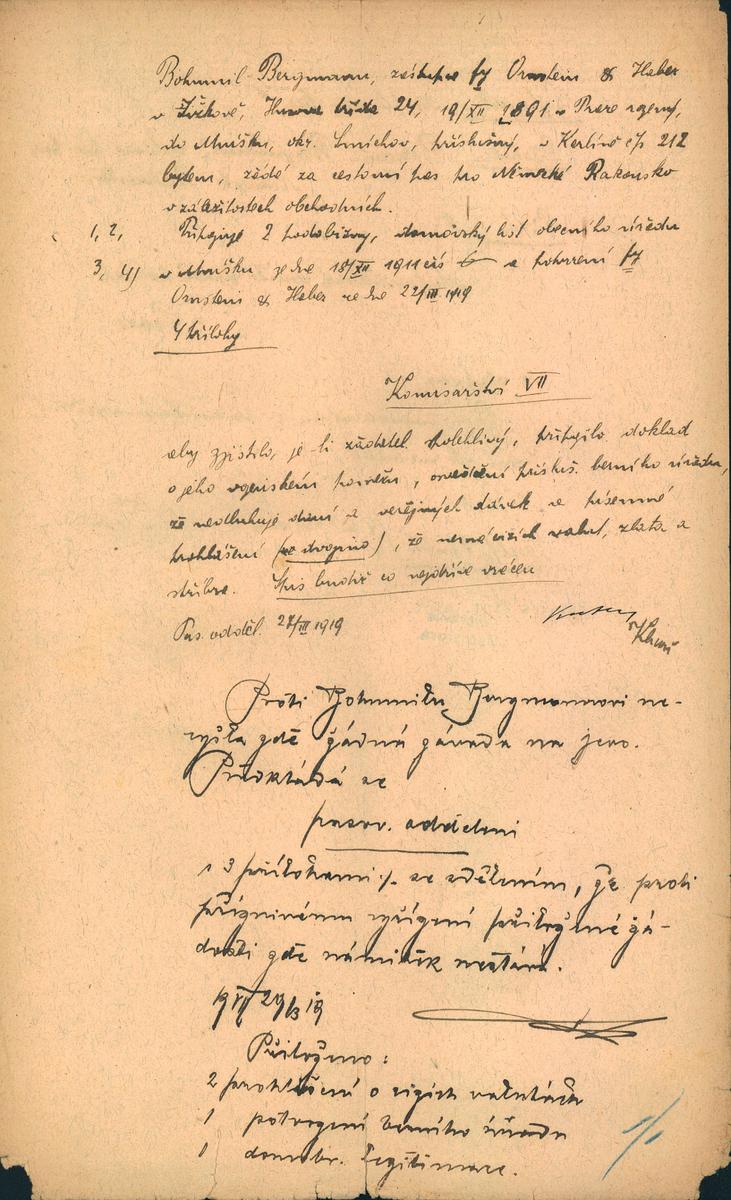 Bohumil Bergmann, zástupce fy Ornstein & Haber
v Žižkově, Husova třída 24, 19/XII 1891 v Praze rozený,
do Mníšku, okr. Smíchov, příslušný, v Karlíně čp 212
bytem, žádá za cestovní pas pro Německé Rakousko
v záležitostech obchodních.
1, 2, Připojuje 2 podobizny, domovský list obecního úřadu
3, 4/ v Mníšku ze dne 18/XII 1911 čís a potvrzení fy
Ornstein & Haber ze dne 22/III 1919
4 přílohy
Komisařství VII
aby zjistilo, je-li žadatel spolehlivý, připojilo doklad
o jeho vojenském poměru, osvědčení přísluš. berního úřadu,
že nedluhuje daní a veřejných dávek a písemné
prohlášení (ve dvojmo), že nemá cizích valut, zlata a
stříbra. Spis budiž co nejdříve vrácen
Pas. odděl. 27/III 1919
Proti Bohumilu Bergmannovi ne-
vyšla zde žádná závada na jevo.
Předkládá se
pasov. oddělení
s 3 přílohami ·/. se sdělením, že proti
příznivému vyřízení přiložené žá-
dosti zde námitek nestává.
VII 29/3 19
Přiloženo:
2 prohlášení o cizích valutách
1 potvrzení berního úřadu
1 domobr. legitimace.
1/1